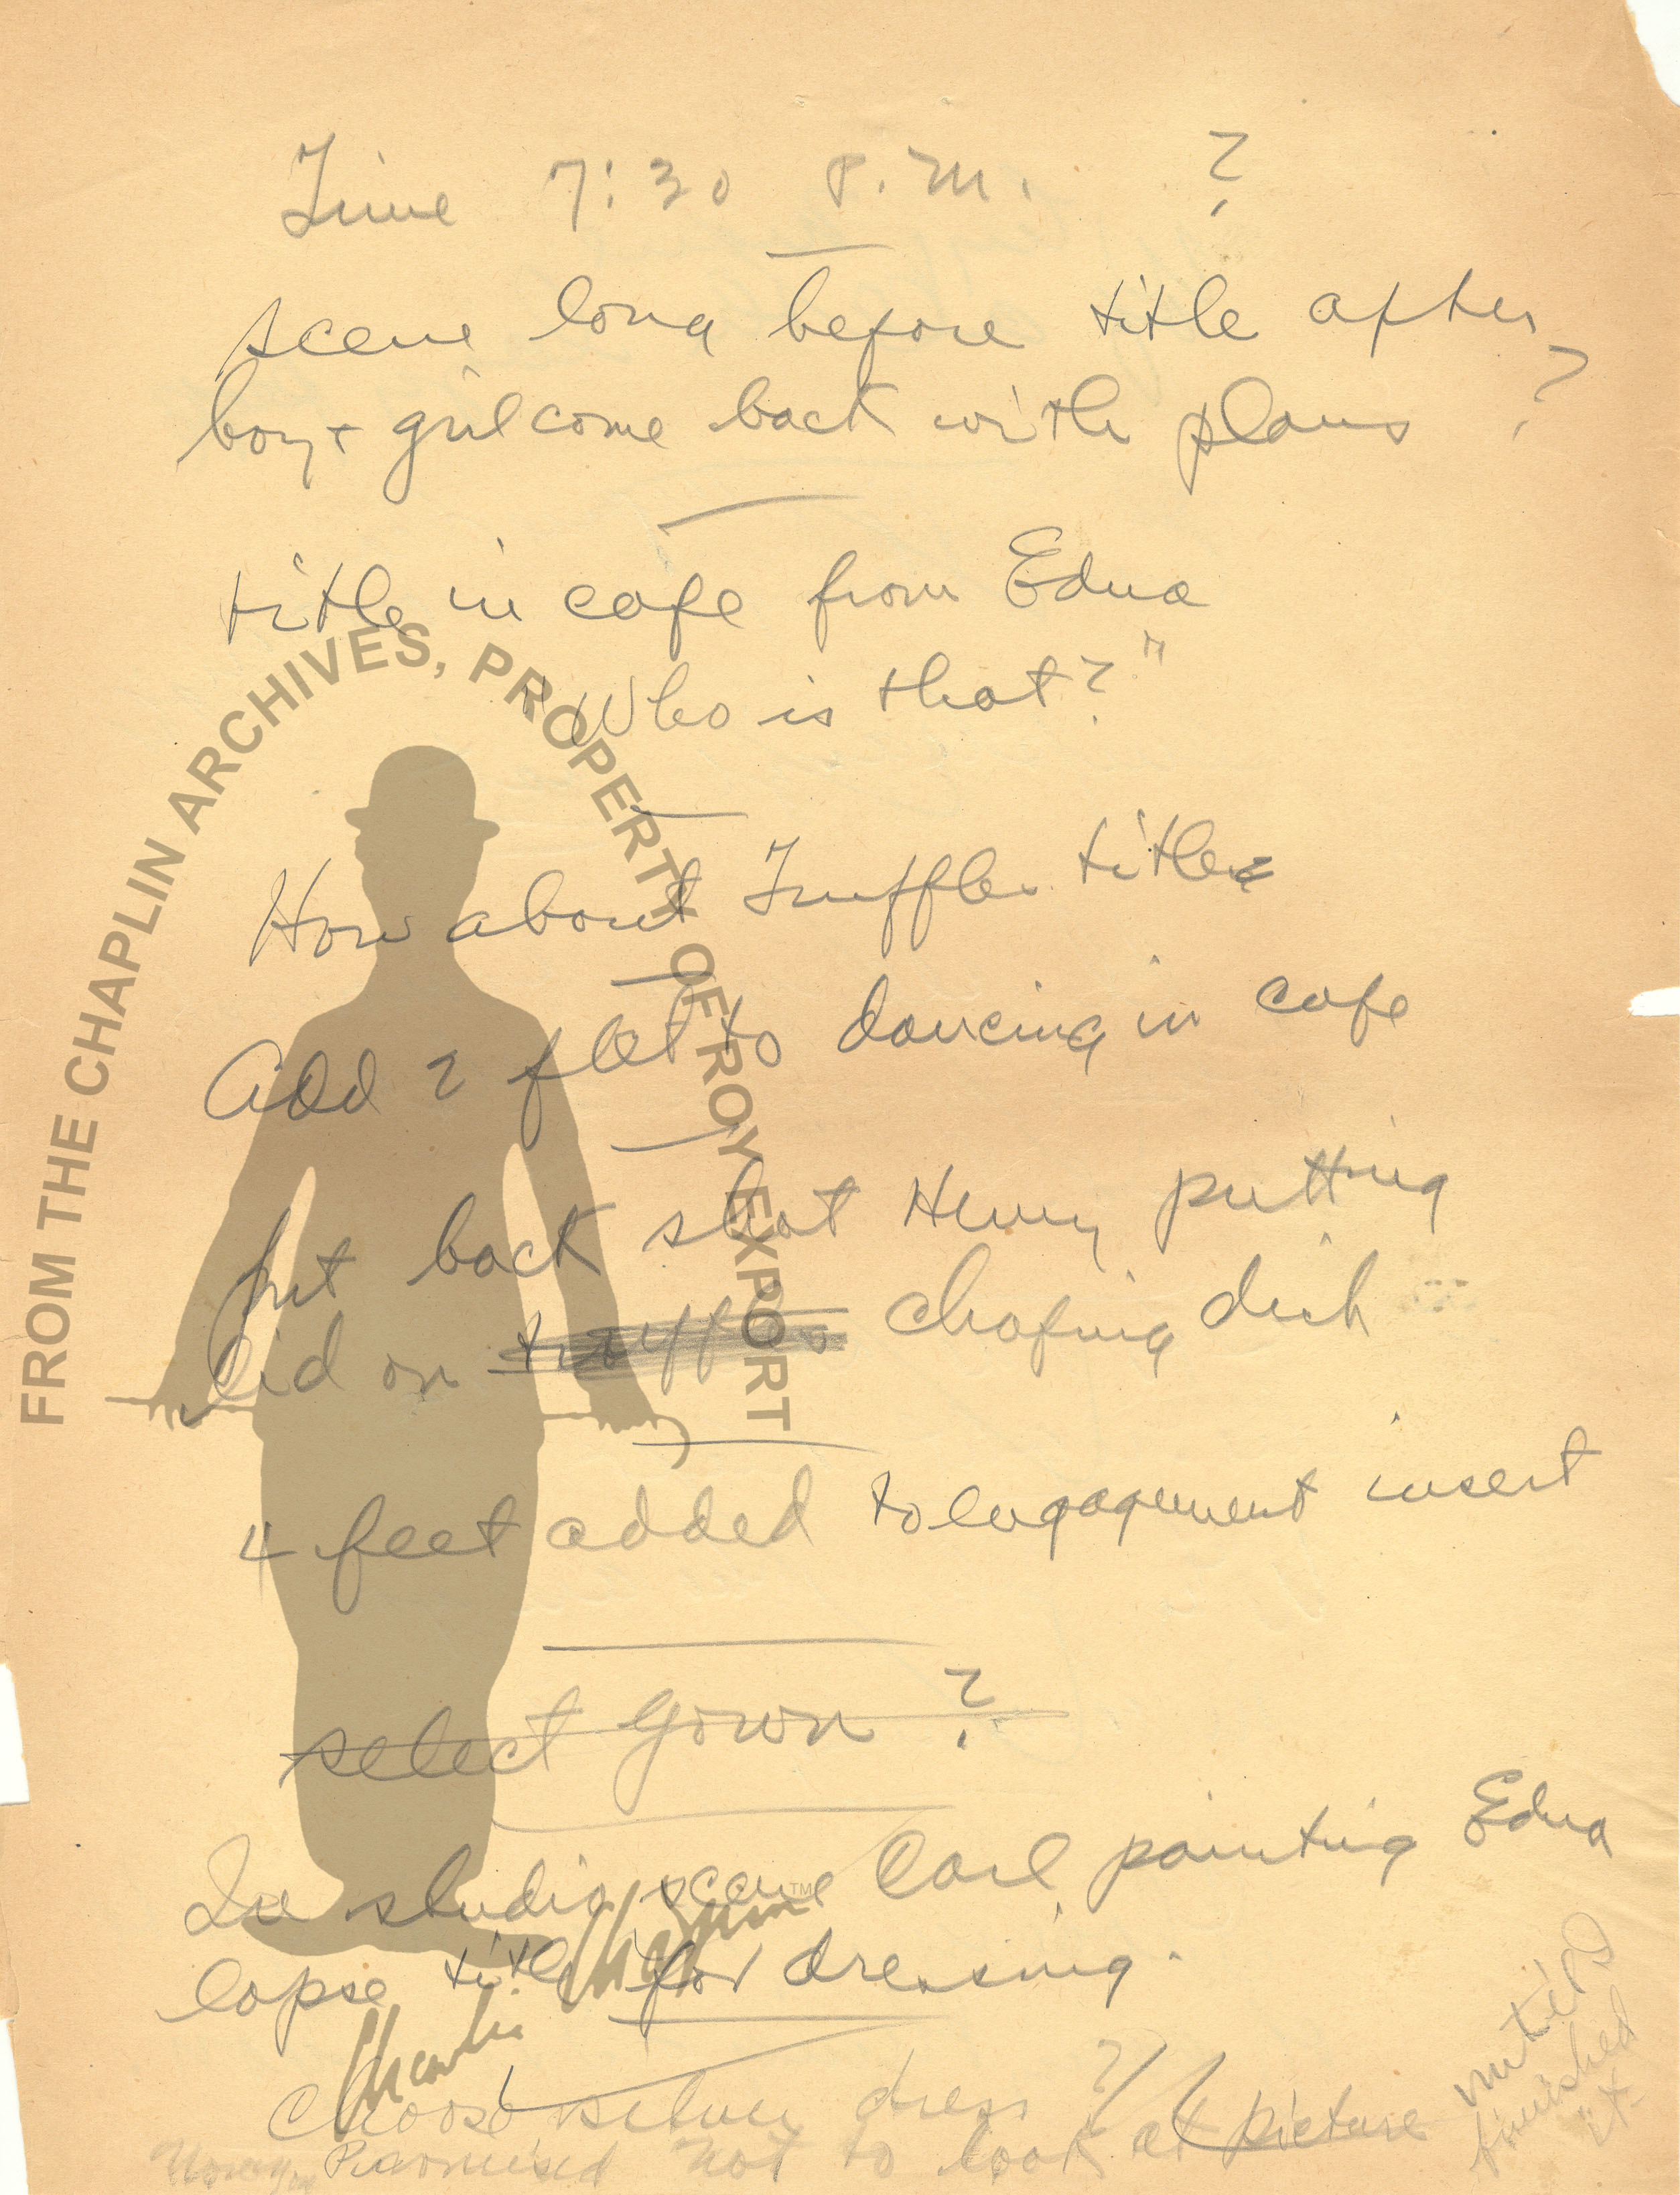 Time 7:30 P.M. ?
scene long before title after
boy + girl come back with plans ?
title in cafe from Edna
"Who is that?"
How about Truffles title
Add 2 feet to dancing in cafe
put back shot Henry putting
lid on truffles chafing dish
4 feet added to engagement insert
select gown ?
In studio scene Carl painting Edna
lapse title for dressing.
Choose silver dress ?
Promised not to look at picture
until
finished
it
FROM THE CHAPLIN ARCHIVES, PROPERTY OF ROY EXPORT
TM
Charlie Chaplin